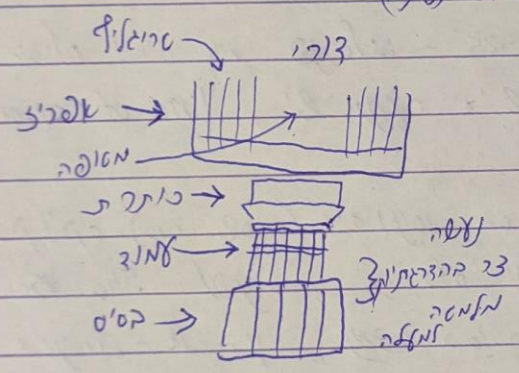 דורי
טריגליף
אפריז
מטופה
כותרת
עמוד
בסיס
נעשה
צר בהדרגתיות
מלמטה
למעלה